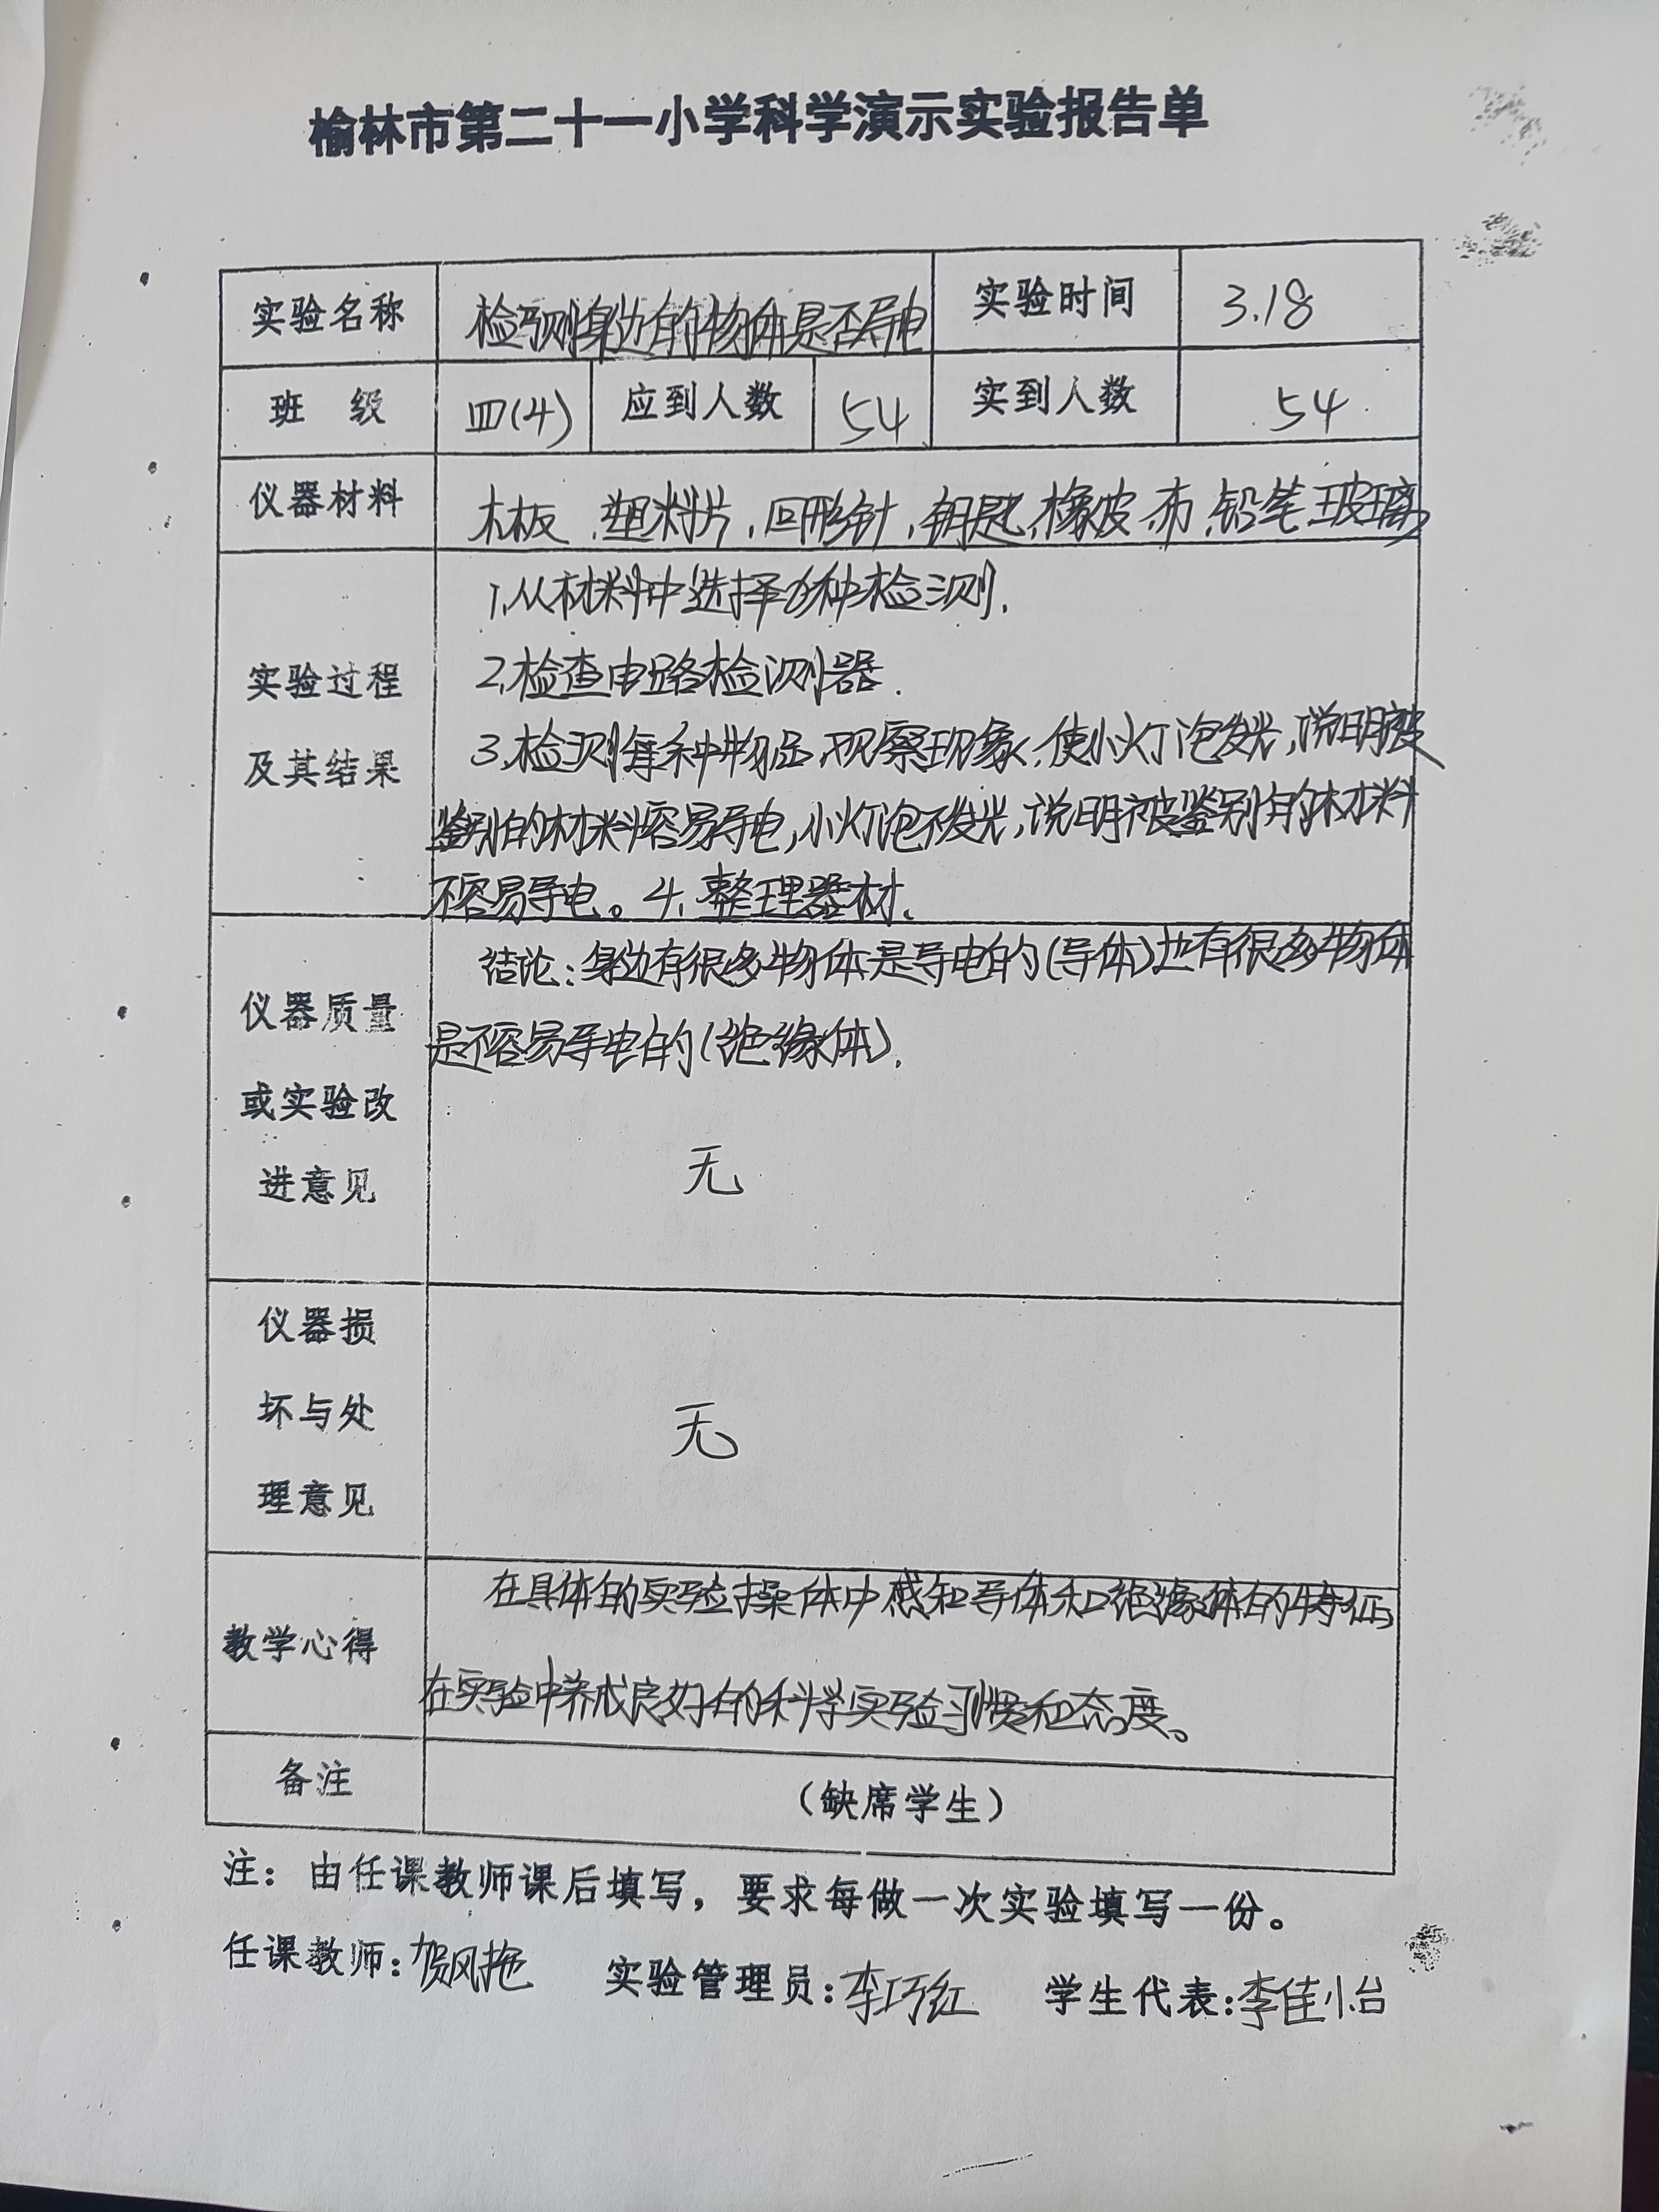 榆林市第二十一小学科学演示实验报告单
实验名称 检测身边的物体是否导电 实验时间 3.18
班 级 四(4) 应到人数 54 实到人数 54
仪器材料 木板、塑料片、回形针、钥匙、橡皮、布、铅笔、玻璃
实验过程
及其结果
1、从材料中选择6种检测.
2、检查电路检测器.
3、检测每种物品,观察现象,使小灯泡发光,说明被
鉴别的材料容易导电,小灯泡不发光,说明被鉴别的材料
不容易导电。4、整理器材、
仪器质量
或实验改
进意见
结论:身边有很多物体是导电的(导体)也有很多物体
是不容易导电的(绝缘体).
无
仪器损
坏与处
理意见
无
教学心得
在具体的实验操体中感知导体和绝缘体的特征,
在实验中养成良好的科学实验习惯和态度。
备注 (缺席学生)
注:由任课教师课后填写,要求每做一次实验填写一份。
任课教师:贺风艳 实验管理员:李巧红 学生代表:李佳怡